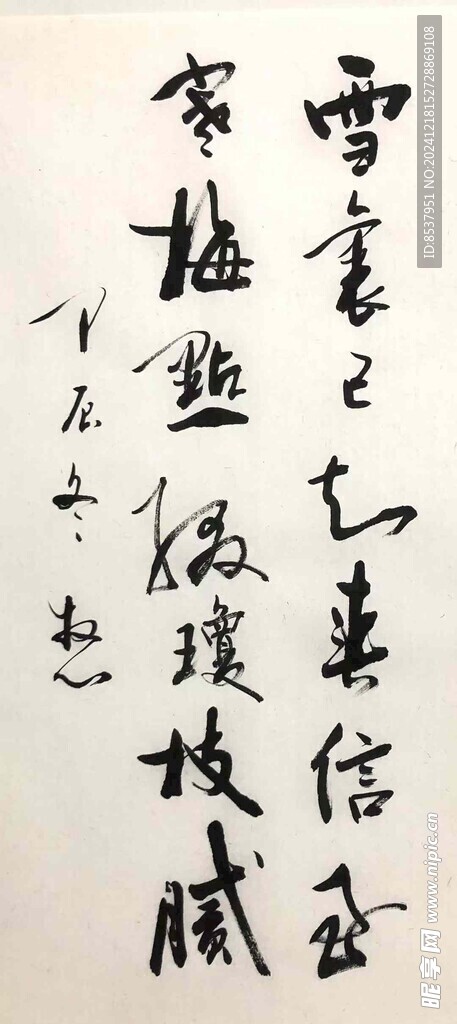 雪裏已知春信至
寒梅點綴瓊枝膩
辰冬
ID:8537951 NO:20241218152728869108
昵享网 www.nipic.cn